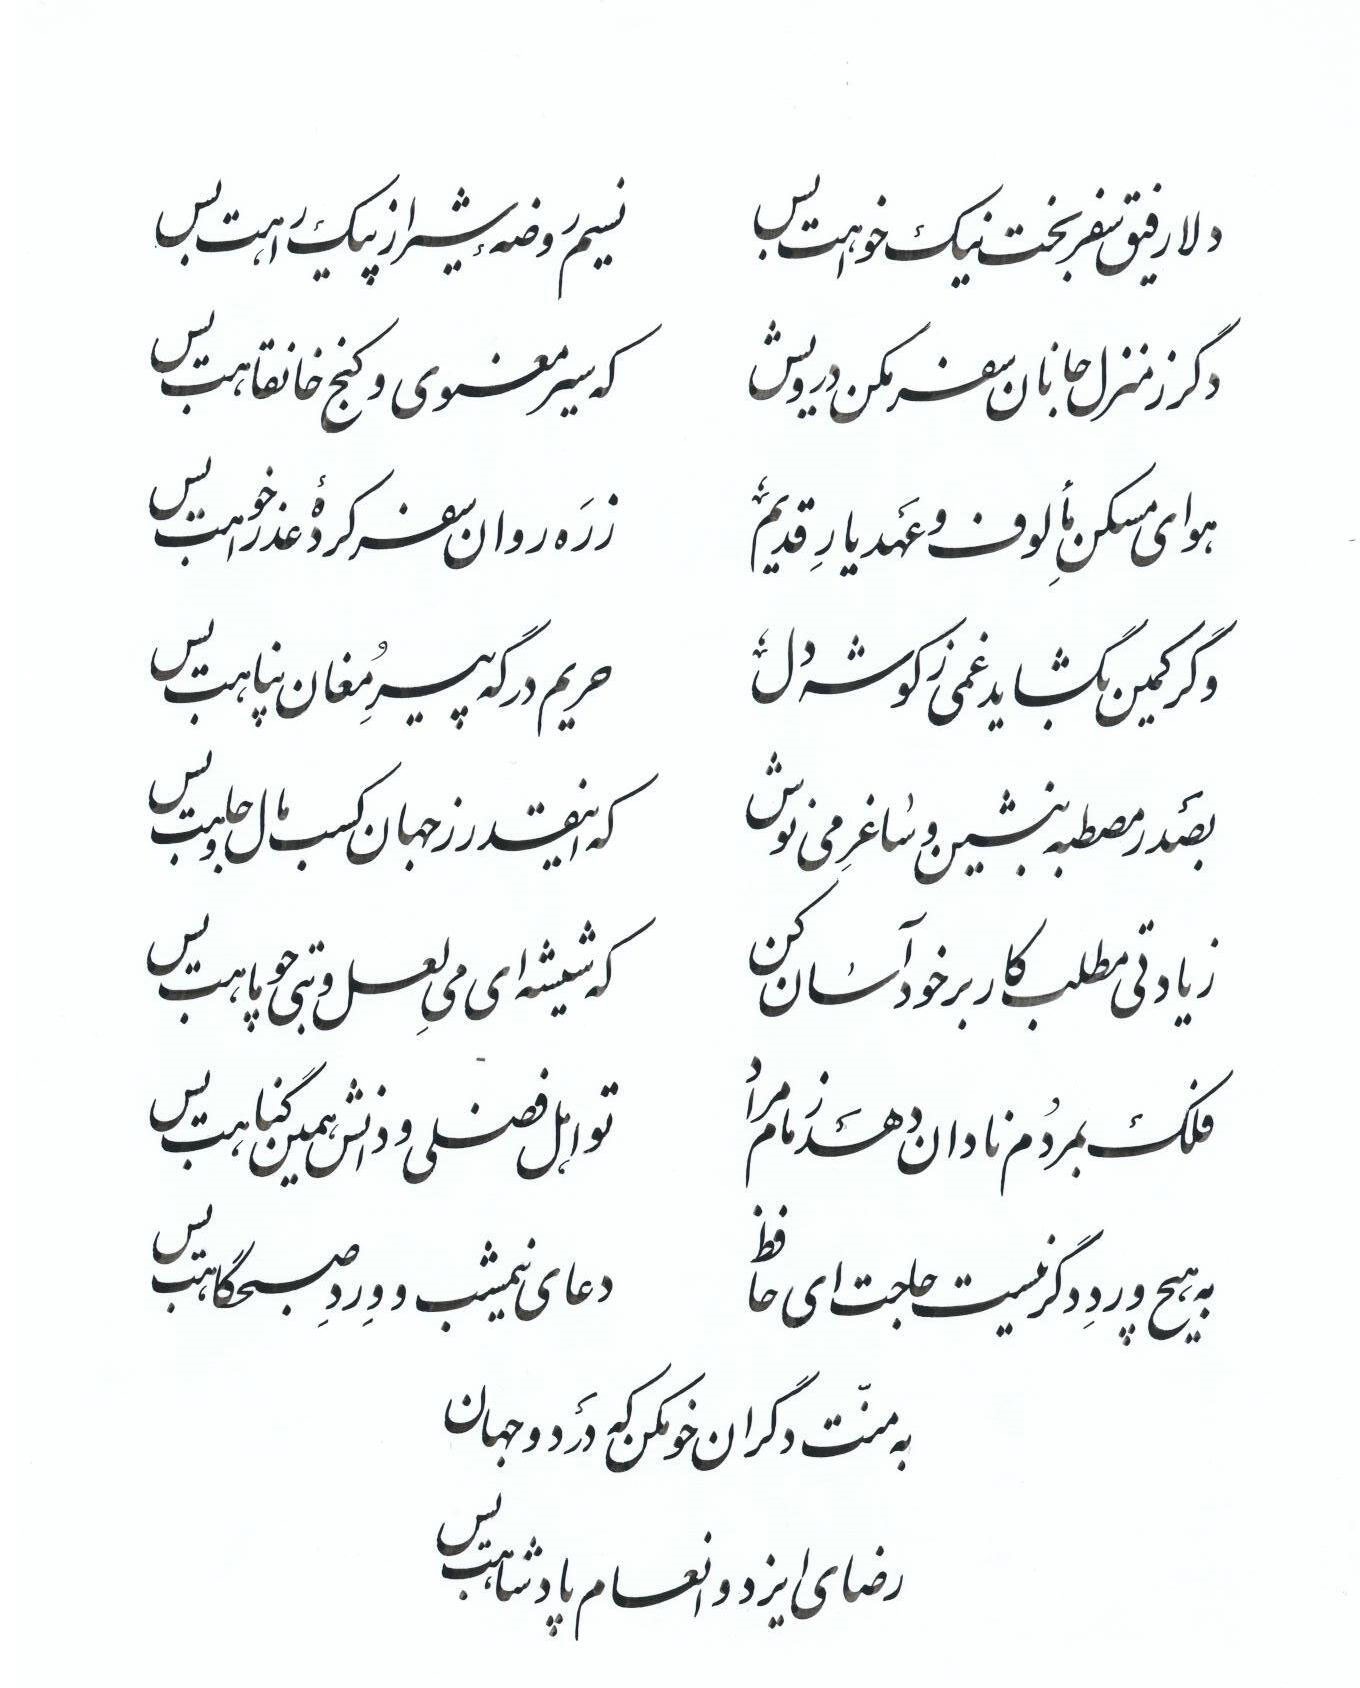 دلا رفیق سفر بخت نیک خواهت بس نسیم روضهٔ شیراز پیک راهت بس
دگر ز منزل جانان سفر مکن درویش که سیر معنوی و کنج خانقاهت بس
هوای مسکنِ مألوف و عَهد یارِ قدیم ز رَه روان سفر کردهٔ عذر خواهت بس
وگر کمین بگشاید غمی ز گوشه دل حریم درگه پیرِ مُغان پناهت بس
بصَدر مصطبه بنشین و ساغرِ می نوش که اینقدر ز جهان کسب مال و جاهت بس
زیادتی مطلب کار بر خود آسان کن که شیشه ای میِ لعل و بتی چو ماهت بس
فلک بمردُم نادان دهَد زمام مراد تو اهل فضلی و دانش همین گناهت بس
به هیچ وردِ دگر نیست حاجت ای حافظ دعای نیمشب و وِردِ صبحگاهت بس
به منّت دگران خو مکن که دَر دو جهان
رضای ایزد و انعام پادشاهت بس